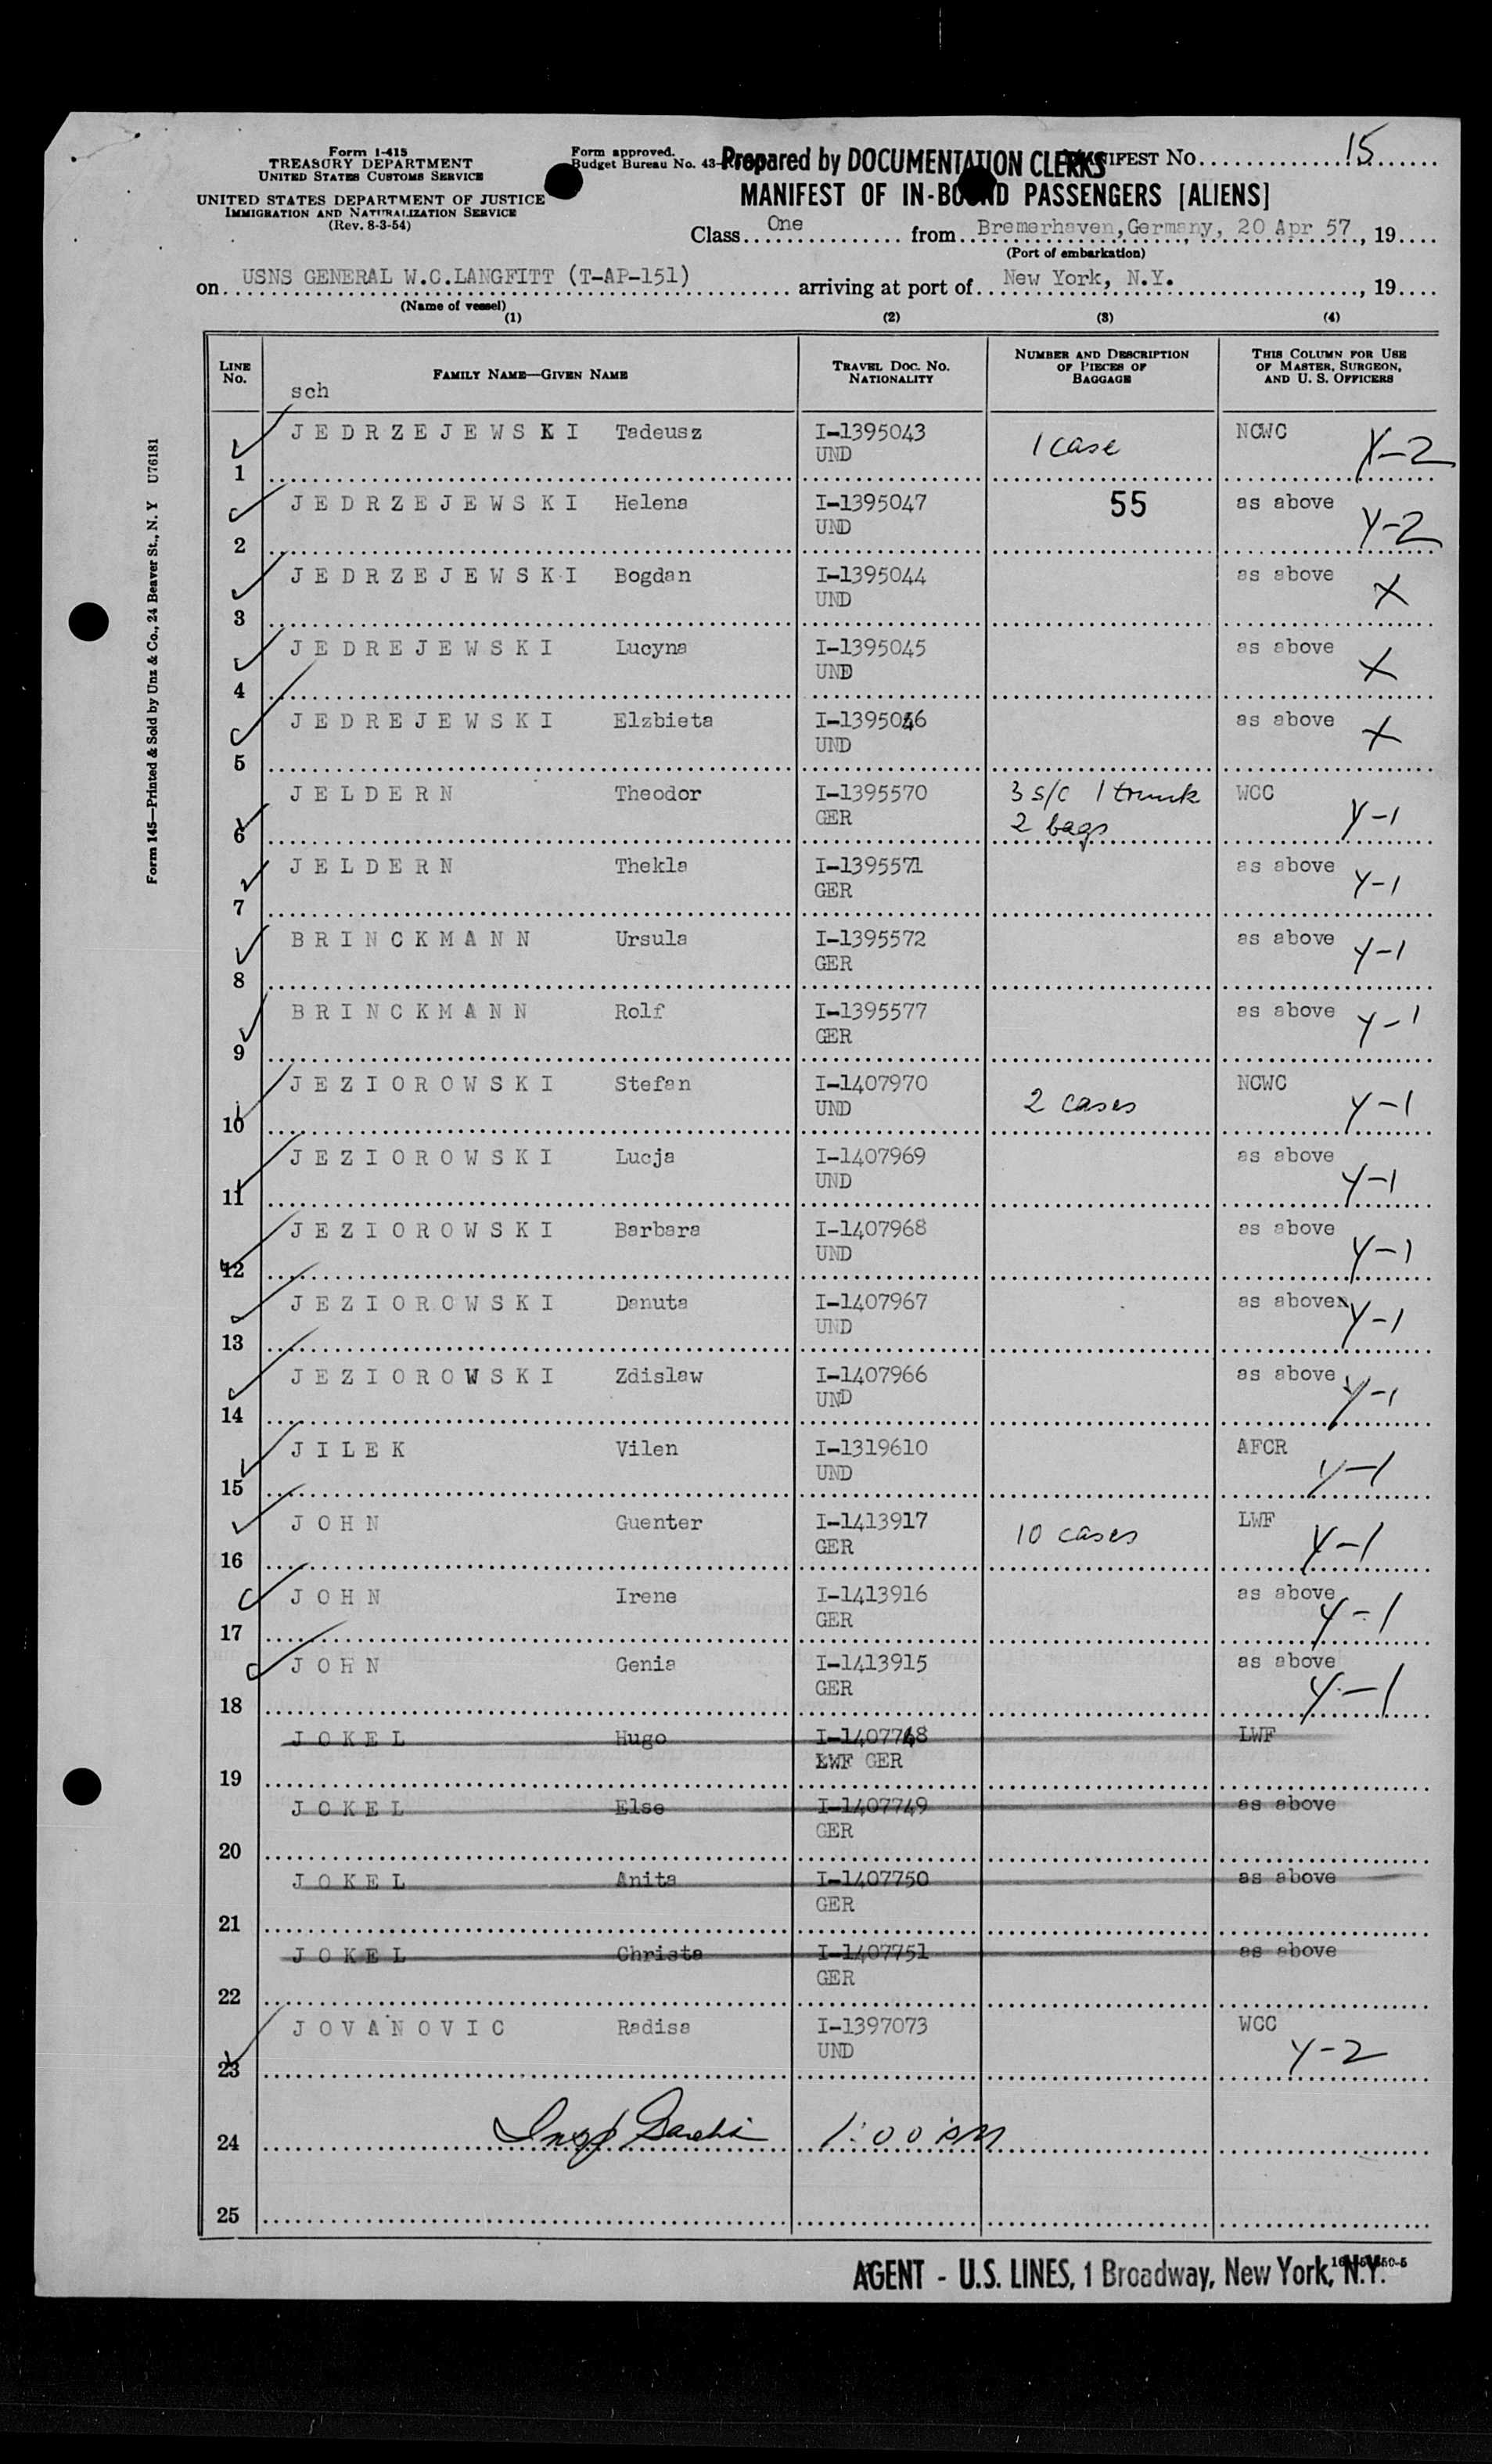 Form I-415
TREASURY DEPARTMENT
UNITED STATES CUSTOMS SERVICE
UNITED STATES DEPARTMENT OF JUSTICE
IMMIGRATION AND NATURALIZATION SERVICE
(Rev. 8-3-54)
Form approved.
Budget Bureau No. 43-
Prepared by DOCUMENTATION CLERKS
MANIFEST NO. 15
MANIFEST OF IN-BOUND PASSENGERS [ALIENS]
Class One from Bremerhaven, Germany, 20 Apr 57, 19
(Port of embarkation)
on USNS GENERAL W.C.LANGFITT (T-AP-151) arriving at port of New York, N.Y. , 19
(Name of vessel)
(1) (2) (3) (4)
LINE NO. FAMILY NAME—GIVEN NAME TRAVEL DOC. NO. NATIONALITY NUMBER AND DESCRIPTION OF PIECES OF BAGGAGE THIS COLUMN FOR USE OF MASTER, SURGEON, AND U. S. OFFICERS
sch
1 JEDRZEJEWSKI Tadeusz I-1395043 UND 1 case NCWC Y-2
2 JEDRZEJEWSKI Helena I-1395047 UND 55 as above Y-2
3 JEDRZEJEWSKI Bogdan I-1395044 UND as above X
4 JEDREJEWSKI Lucyna I-1395045 UND as above X
5 JEDREJEWSKI Elzbieta I-1395046 UND as above X
6 JELDERN Theodor I-1395570 GER 3 s/c 1 trunk 2 bags WCC Y-1
7 JELDERN Thekla I-1395571 GER as above Y-1
8 BRINCKMANN Ursula I-1395572 GER as above Y-1
9 BRINCKMANN Rolf I-1395577 GER as above Y-1
10 JEZIOROWSKI Stefan I-1407970 UND 2 cases NCWC Y-1
11 JEZIOROWSKI Lucja I-1407969 UND as above Y-1
12 JEZIOROWSKI Barbara I-1407968 UND as above Y-1
13 JEZIOROWSKI Danuta I-1407967 UND as above Y-1
14 JEZIOROWSKI Zdislaw I-1407966 UND as above Y-1
15 JILEK Vilen I-1319610 UND AFCR Y-1
16 JOHN Guenter I-1413917 GER 10 cases LWF Y-1
17 JOHN Irene I-1413916 GER as above Y-1
18 JOHN Genia I-1413915 GER as above Y-1
19 JOKEL Hugo I-1407748 LWF GER LWF
20 JOKEL Else I-1407749 GER as above
21 JOKEL Anita I-1407750 GER as above
22 JOKEL Christa I-1407751 GER as above
23 JOVANOVIC Radisa I-1397073 UND WCC Y-2
24 Insp 1:00 PM
25
AGENT - U.S. LINES, 1 Broadway, New York, N.Y.
Form 145—Printed & Sold by Unz & Co., 24 Beaver St., N. Y U76181